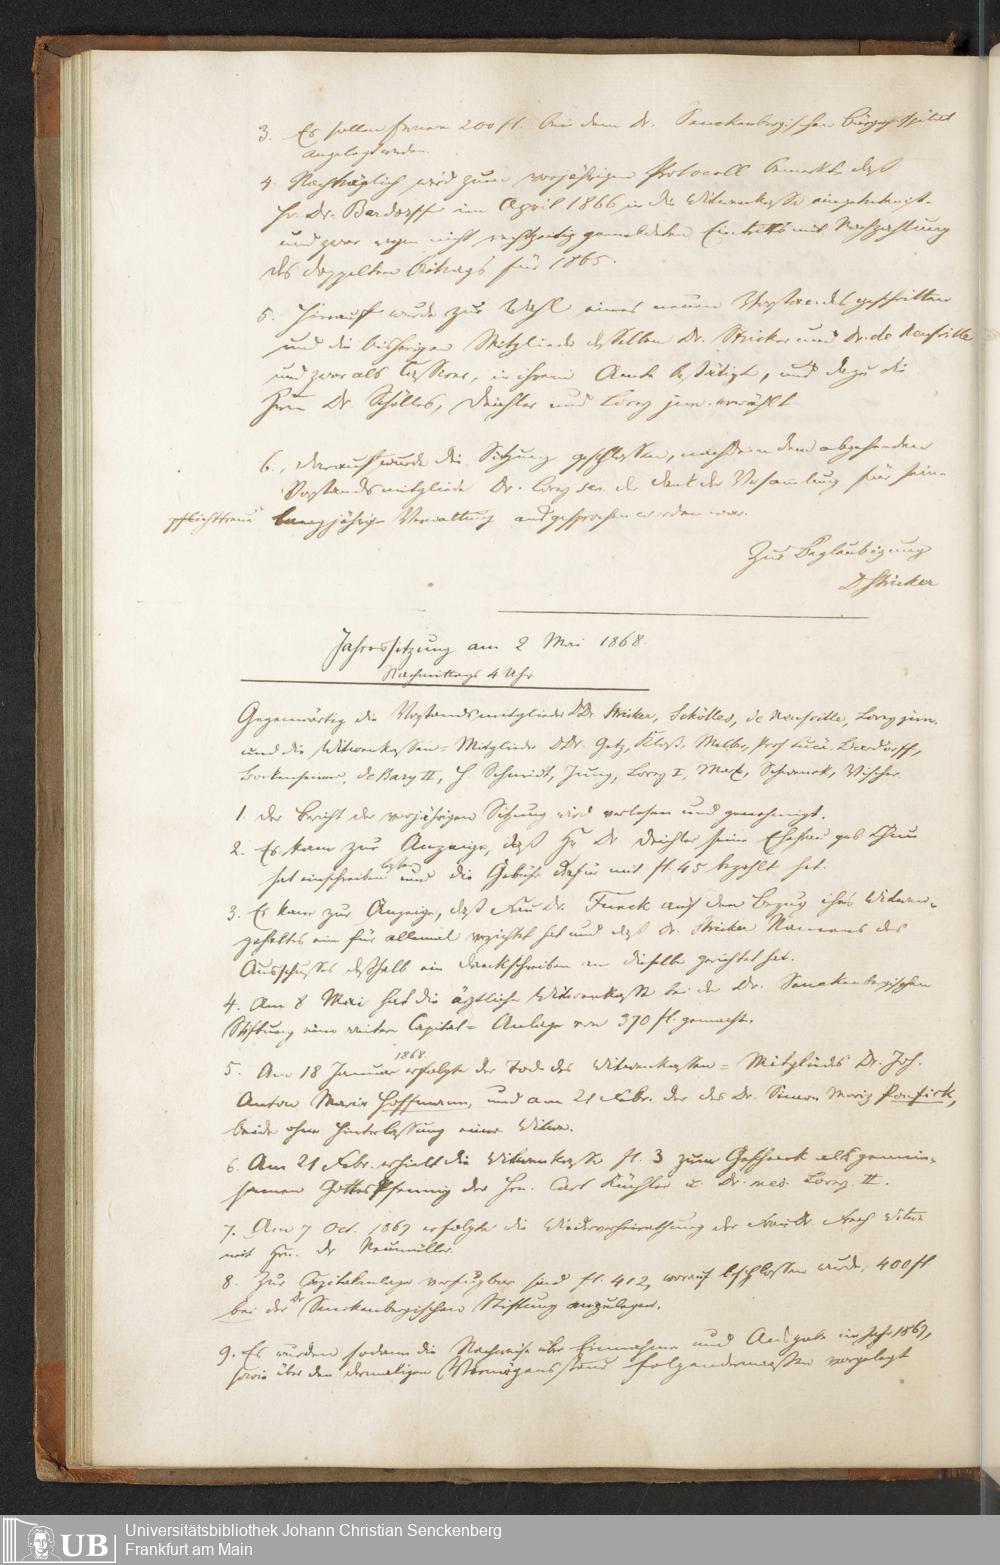 3. Es sollen ferner 200 fl. bei dem Dr. Senckenbergischen Bürgerspital
angelegt werden.
4. Nachträglich wird zum vorjährigen Protocoll bemerkt, daß
Hr. Dr. Bardorff im April 1866 in die Witwenkasse eingetreten ist
und zwar wegen nicht rechtzeitig gemeldeten Eintritts mit Nachzahlung
des doppelten Beitrags für 1865.
5. Hierauf wurde zur Wahl eines neuen Vorstandes geschritten
und die bisherigen Mitglieder desselben Dr. Stricker und Dr. de Neufville
und zwar als Cassirer, in ihrem Amte bestätigt, und dazu die
Herrn Dr. Schölles, Deichler und Lorey jun. erwählt
6. Darauf wurde die Sitzung geschlossen, nachdem dem abgehenden
Vorstandsmitgliede Dr. Lorey sen. der Dank der Versammlung für seine
pflichttreue langjährige Verwaltung ausgesprochen worden war.
Zur Beglaubigung
Dr Stricker
Jahressitzung am 2 Mai 1868.
Nachmittags 4 Uhr
Gegenwärtig die Vorstandsmitglieder DDr Stricker, Schölles, de Neufville, Lorey jun.
und die Witwenkassen-Mitglieder DDr. Getz, Kloß, Melber, Prof Lucä, Bardorff,
Bockenheimer, de Bary II, H. Schmidt, Jung, Lorey I, Marx, Schwenck, Vischer.
1. Der Bericht der vorjährigen Sitzung wird verlesen und genehmigt.
2. Es kam zur Anzeige, daß Hr Dr Deichler seine Ehefrau geb
hat einschreiben lassen und die Gebühr dafür mit fl. 45 bezahlt hat.
3. Es kam zur Anzeige, daß Frau Dr. Funck auf den Bezug ihres Witwen-
gehaltes ein für allemal verzichtet hat und daß Dr. Stricker Namens des
Ausschusses deßhalb ein Dankschreiben an dieselbe gerichtet hat.
4. Am 8 Mai hat die ärztliche Witwenkasse bei der Dr. Senckenbergischen
Stiftung eine weitere Capital-Anlage von 370 fl. gemacht.
5. Am 18 Januar 1868 erfolgte der Tod des Witwenkassen-Mitglieds Dr. Joh.
Anton Maria Hoffmann, und am 21 Febr. der des Dr. Simon Moriz Ponfick,
beide ohne Hinterlassung einer Witwe.
6. Am 21 Febr. erhielt die Witwenkasse fl. 3 zum Geschenk als gemein-
samen Gottespfennig der Hrn. Carl Küchler u. Dr. med. Lorey II.
7. Am 7 Oct. 1867 erfolgte die Wiederverheirathung der Frau Dr. Witwe
mit Hrn. Dr Neumüller.
8. Zur Capitalanlage verfügbar sind fl. 412, worauf beschlossen wurde, 400 fl
bei der Dr Senckenbergischen Stiftung anzulegen.
9. Es wurden sodann die Nachweise über Einnahme und Ausgabe im Jahr 1867,
sowie über den dermaligen Vermögensstand folgendermassen vorgelegt
UB
Universitätsbibliothek Johann Christian Senckenberg
Frankfurt am Main